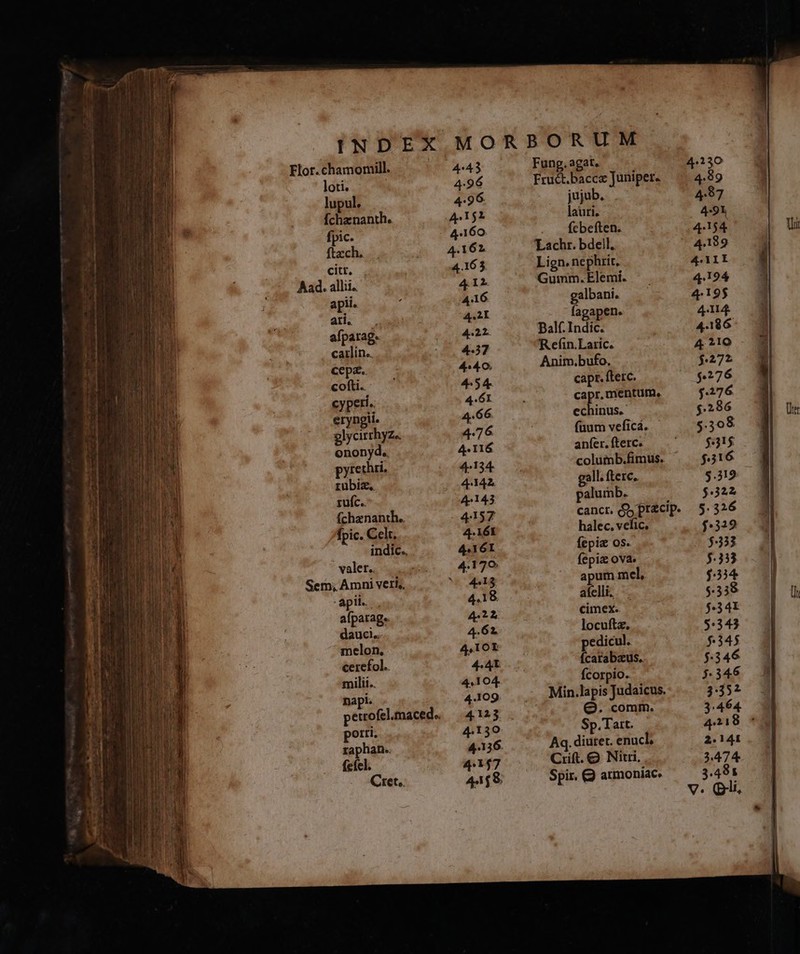 INDEX MORBORUM
Flor. chamomill. 4.43
loti. 4.96
lupul. 4.96
ſchænanth. 4.152
ſpic. 4.160
ſtæch. 4.162
citr. 4.163
Aad. allii. 4.12
apii. 4.16
ari. 4.21
aſparag. 4.22
carlin. 4.37
cepæ. 4.40
coſti. 4.54
cyperi. 4.61
eryngii. 4.66
glycirrhyz. 4.76
ononyd. 4.116
pyrethri. 4.134
rubiæ. 4.142
ruſc. 4.143
ſchænanth. 4.157
ſpic. Celt. 4.161
indic. 4.161
valer. 4.170
Sem. Amni veri. 4.13
apii. 4.18
aſparag. 4.22
dauci. 4.62
melon. 4.101
cerefol. 4.41
milii. 4.104
napi. 4.109
petroſel.maced. 4.123
porri. 4.130
raphan. 4.136
ſeſel. 4.157
Cret. 4.158
Fung. agar. 4.230
Fruct. baccæ Juniper. 4.89
jujub. 4.87
lauri. 4.91
ſebeſten. 4.154
Lachr. bdell. 4.189
Lign. nephrit. 4.111
Gumm. Elemi. 4.194
galbani. 4.195
ſagapen. 4.114
Balſ. Indic. 4.186
Reſin. Laric. 4.210
Anim. bufo. 5.272
capr. ſterc. 5.276
capr. mentum. 5.276
echinus. 5.286
ſuum veſica. 5.308
anſer. ſterc. 5.315
columb. fimus. 5.316
gall. ſterc. 5.319
palumb. 5.322
cancr. præcip. 5.326
halec. veſic. 5.329
ſepiæ os. 5.333
ſepiæ ova. 5.333
apum mel. 5.334
aſelli. 5.338
cimex. 5.341
locuſtæ. 5.343
pedicul. 5.345
ſcarabæus. 5.346
ſcorpio. 5.346
Min. lapis Judaicus. 3.352
🜔. comm. 3.464
Sp. Tart. 4.218
Aq. diuret. enucl. 2.141
Criſt. 🜔 Nitri. 3.474
Spir. 🜔 armoniac. 3.481